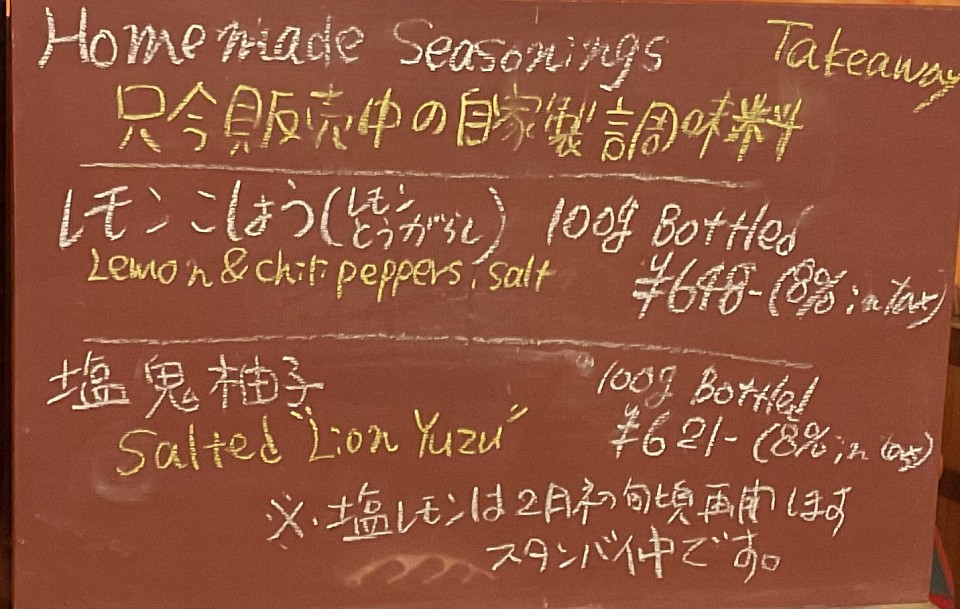 Homemade Seasonings
Takeaway
只今販売中の自家製調味料
レモンこしょう(レモンとうがらし) 100g Bottled
Lemon & chili peppers, salt
¥648-(8% in tax)
塩鬼柚子
100g Bottled
Salted "Lion Yuzu"
¥621-(8% in tax)
※・塩レモンは2月初旬頃再開します
スタンバイ中です。